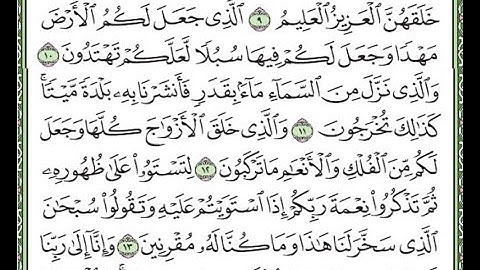 خَلَقَهُنَّ ٱلْعَزِيزُ ٱلْعَلِيمُ ٩ ٱلَّذِى جَعَلَ لَكُمُ ٱلْأَرْضَ
مَهْدًا وَجَعَلَ لَكُمْ فِيهَا سُبُلًا لَّعَلَّكُمْ تَهْتَدُونَ ١٠
وَٱلَّذِى نَزَّلَ مِنَ ٱلسَّمَآءِ مَآءًۢ بِقَدَرٍ فَأَنشَرْنَا بِهِۦ بَلْدَةً مَّيْتًا
كَذَٰلِكَ تُخْرَجُونَ ١١ وَٱلَّذِى خَلَقَ ٱلْأَزْوَٰجَ كُلَّهَا وَجَعَلَ
لَكُم مِّنَ ٱلْفُلْكِ وَٱلْأَنْعَٰمِ مَا تَرْكَبُونَ ١٢ لِتَسْتَوُۥا۟ عَلَىٰ ظُهُورِهِۦ
ثُمَّ تَذْكُرُوا۟ نِعْمَةَ رَبِّكُمْ إِذَا ٱسْتَوَيْتُمْ عَلَيْهِ وَتَقُولُوا۟ سُبْحَٰنَ
ٱلَّذِى سَخَّرَ لَنَا هَٰذَا وَمَا كُنَّا لَهُۥ مُقْرِنِينَ ١٣ وَإِنَّآ إِلَىٰ رَبِّنَا